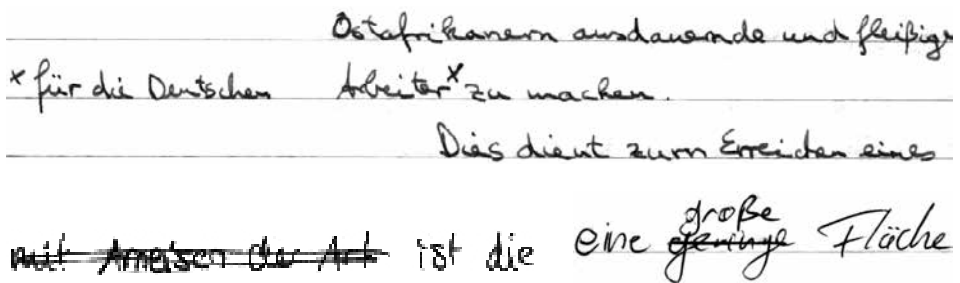 Ostafrikanern ausdauernde und fleißige
× für die Deutschen Arbeiter × zu machen.
Dies dient zum Erreichen eines
mit Ameisen der Art ist die
große
eine geringe Fläche